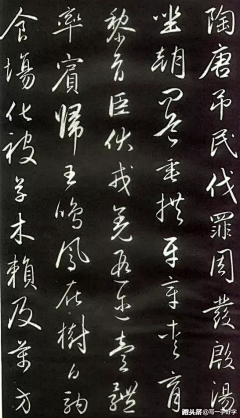 陶唐吊民伐罪周發殷湯
坐朝問道垂拱平章愛育
黎首臣伏戎羌遐邇壹體
率賓歸王鳴鳳在樹白駒
食場化被草木賴及萬方
头条 @写一手好字